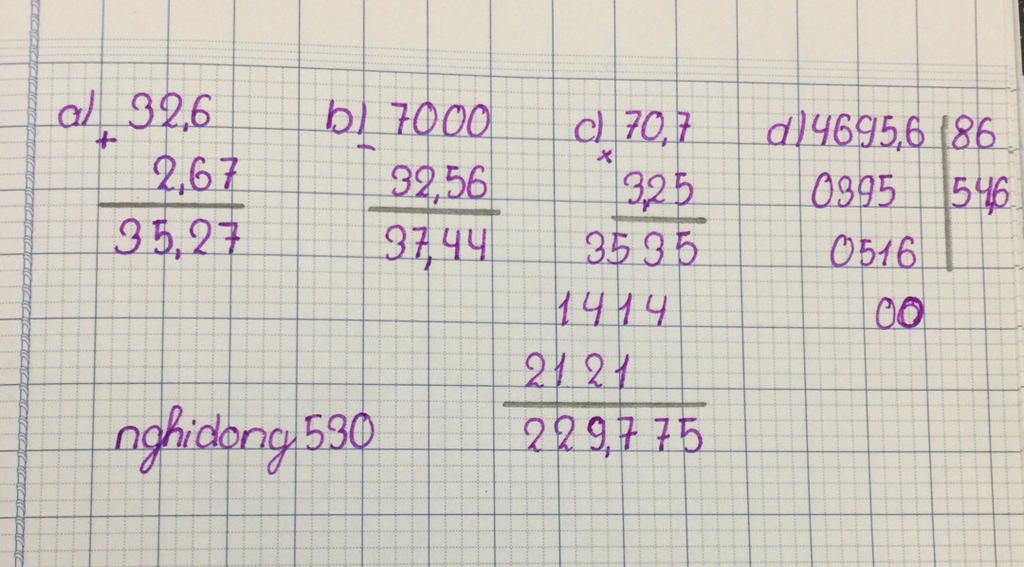 a) 32,6
+
2,67
35,27
b) 7000
-
32,56
37,44
c) 70,7
x
3,25
3535
1414
2121
229,775
d) 4695,6 86
0395 54,6
0516
00
nghidong530